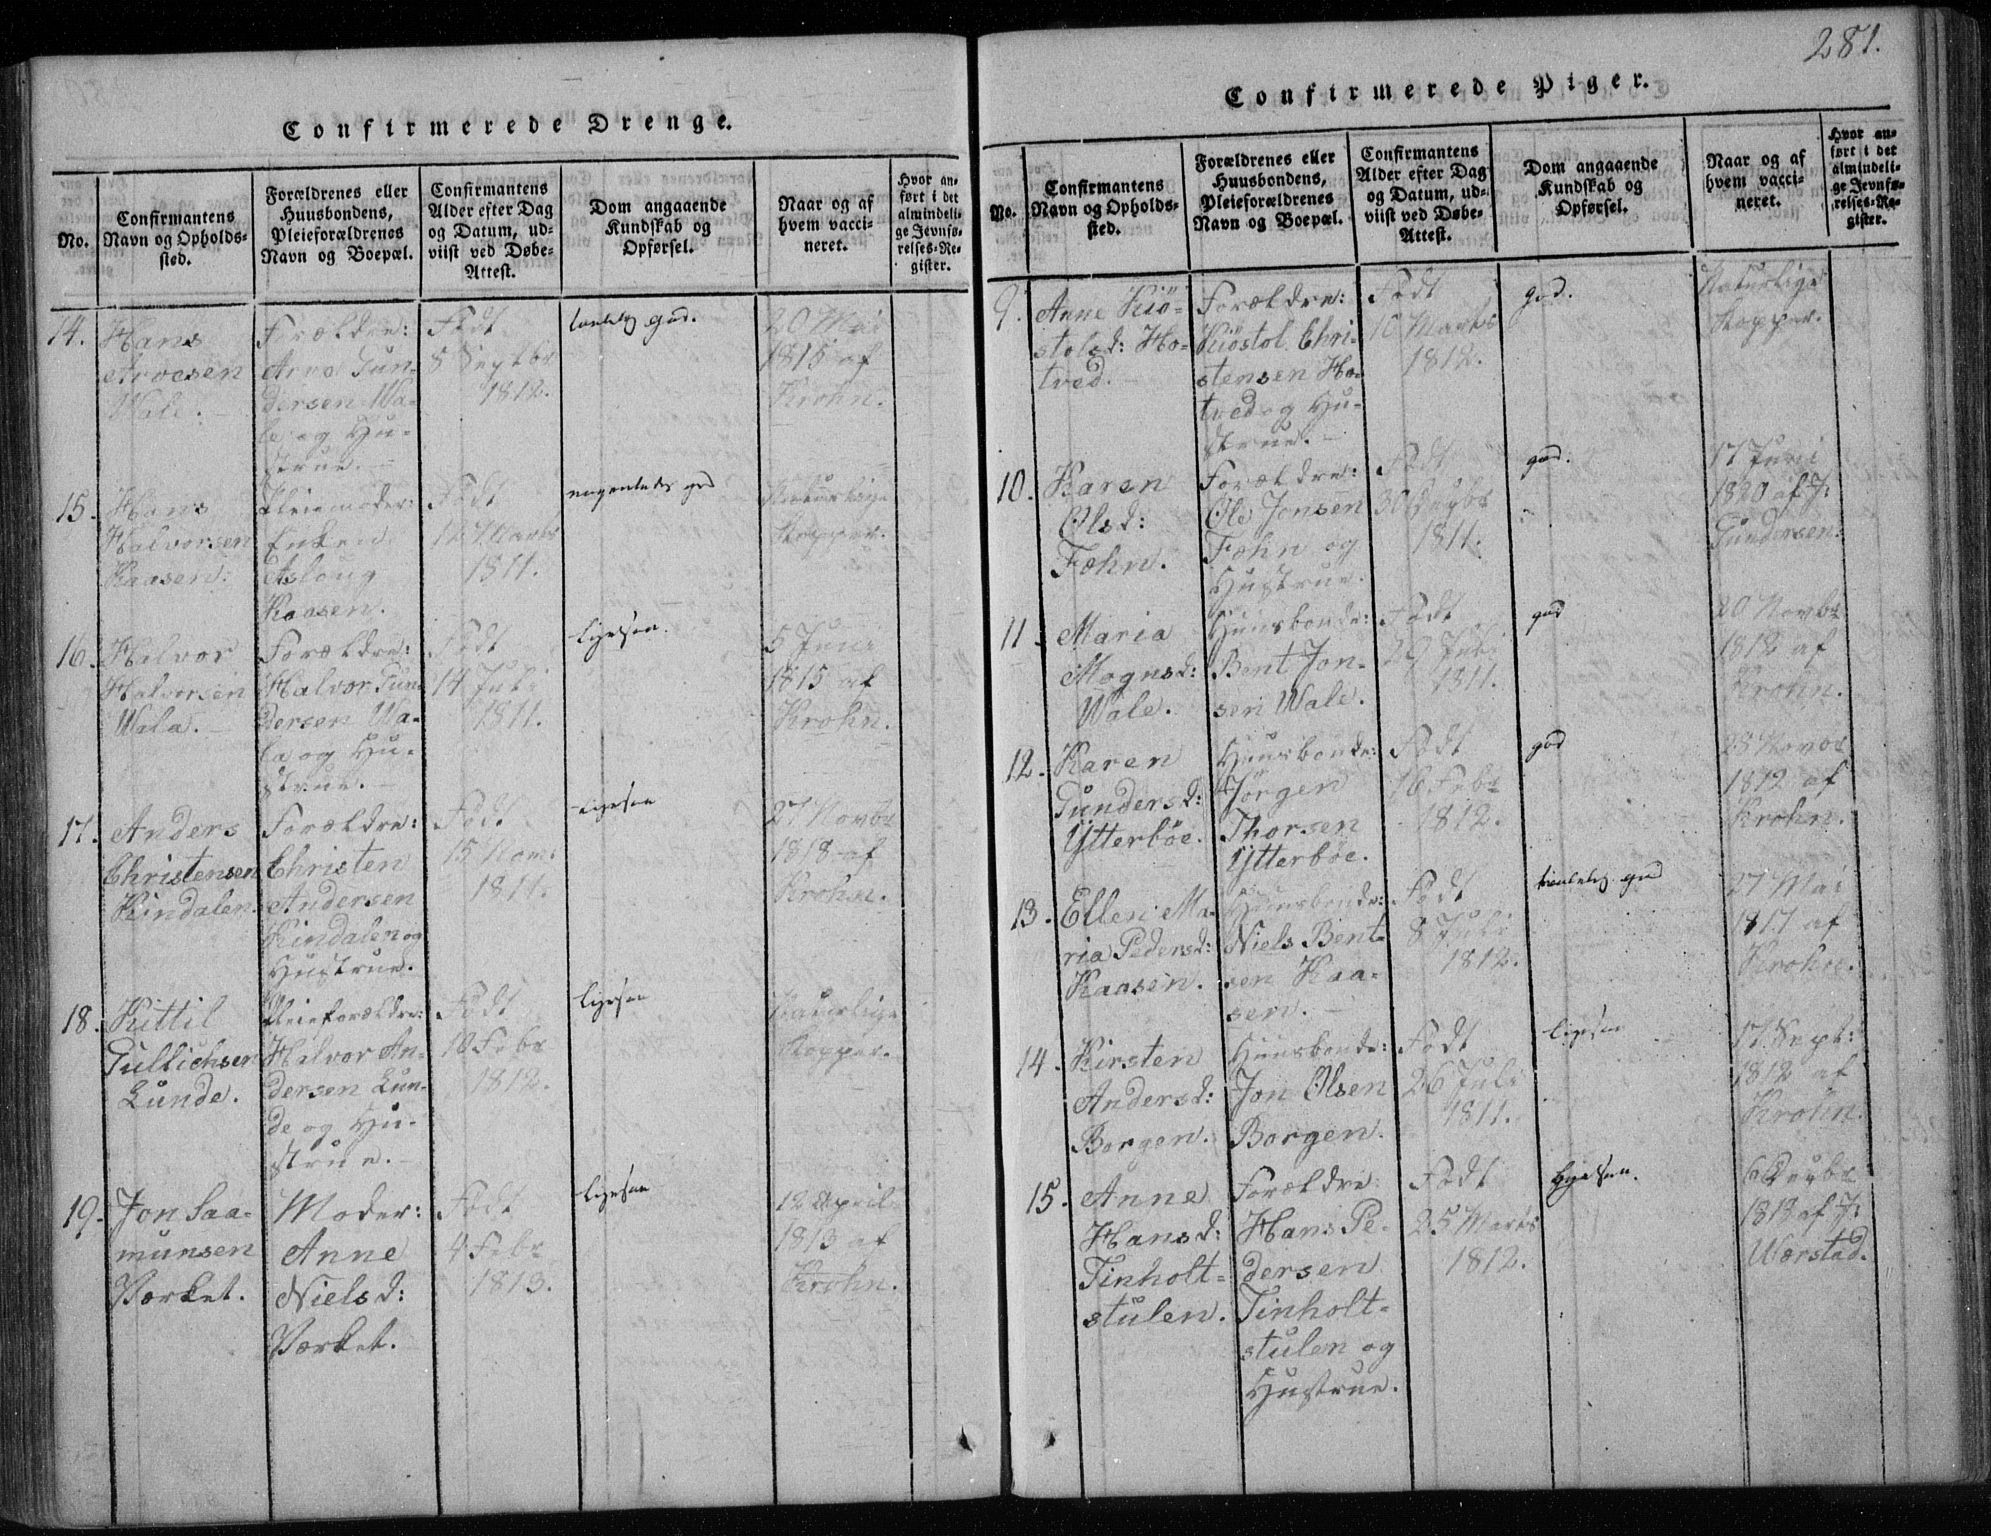 281.
Confirmerede Drenge.
No.
Confirmantens
Navn og Opholds-
sted.
Forældrenes eller
Huusbondens,
Pleieforældrenes
Navn og Boepæl.
Confirmantens
Alder efter Dag
og Datum, ud-
viist ved Døbe-
Attest.
Dom angaaende
Kundskab og
Opførsel.
Naar og af
hvem vacci-
neret.
Hvor an-
ført i det
almindeli-
ge Jevnfø-
relses-Re-
gister.
14.
Hans
Arvesen
Wale.
Forældre:
Arve Gun-
dersen Wa-
le og Hu-
strue.
Født
8 Septbr
1812.
god.
20 Mai
1815 af
Krohn.
15.
Hans
Halvorsen
Kaasen.
Pleiemoder:
Enken
Aslaug
Kaasen.
Født
12 Marts
1811.
nogenledes god
Naturlige
Kopper.
16.
Halvor
Halvorsen
Wala.
Forældre:
Halvor Gun-
dersen Wa-
la og Hu-
strue.
Født
14 Juli
1811.
ligesaa.
5 Juni
1815 af
Krohn.
17.
Anders
Christensen
Kindalen.
Forældre:
Christen
Andersen
Kindalen og
Hustrue.
Født
15
1811.
ligesaa
27 Novbr
1818 af
Krohn.
18.
Kittil
Gullichsen
Lunde.
Pleieforældre:
Halvor An-
dersen Lun-
de og Hu-
strue.
Født
10 Febr
1812.
ligesaa
Naturlige
Kopper.
19.
Jon Saa-
munsen
Værket.
Moder:
Anne
Nielsd:
Værket.
Født
4 Febr
1813.
ligesaa
12 April
1813 af
Krohn.
Confirmerede Piger.
No.
Confirmantens
Navn og Opholds-
sted.
Forældrenes eller
Huusbondens,
Pleieforældrenes
Navn og Boepæl.
Confirmantens
Alder efter Dag
og Datum, ud-
viist ved Døbe-
Attest.
Dom angaaende
Kundskab og
Opførsel.
Naar og af
hvem vacci-
neret.
Hvor an-
ført i det
almindeli-
ge Jevnfø-
relses-Re-
gister.
9.
Anne Kiø-
stolsd: Ho-
tved.
Forældre:
Kiøstol Chri-
stensen Ho-
tved og Hu-
strue.
Født
10 Marts
1812.
god.
Naturlige
Kopper.
10.
Karen
Olsd:
Fæhn.
Forældre:
Ole Jonsen
Fæhn og
Hustrue.
Født
30
1811.
god.
17 Juni
1820 af J:
Gundersen.
11.
Maria
Mognsd:
Wale.
Huusbonde:
Bent Jon-
sen Wale.
Født
29 Juli
1811.
god
20 Novbr
1812 af
Krohn.
12.
Karen
Gundersd:
Ytterbøe.
Huusbonde:
Jørgen
Thorsen
Ytterbøe.
Født
16 Febr
1812.
god
23 Novbr
1812 af
Krohn.
13.
Ellen Ma-
ria Pedersd:
Kaasen.
Huusbonde:
Niels Bent-
sen Kaa-
sen.
Født
8 Juli
1812.
god
27 Mai
1817 af
Krohn.
14.
Kirsten
Andersd:
Borgen.
Huusbonde:
Jon Olsen
Borgen.
Født
26 Juli
1811.
ligesaa
17 Sept:
1812 af
Krohn.
15.
Anne
Hansd:
Tinholt-
stulen.
Forældre:
Hans Pe-
dersen
Tinholt-
stulen og
Hustrue.
Født
25 Marts
1812.
ligesaa.
1818 af J:
Wærstad.